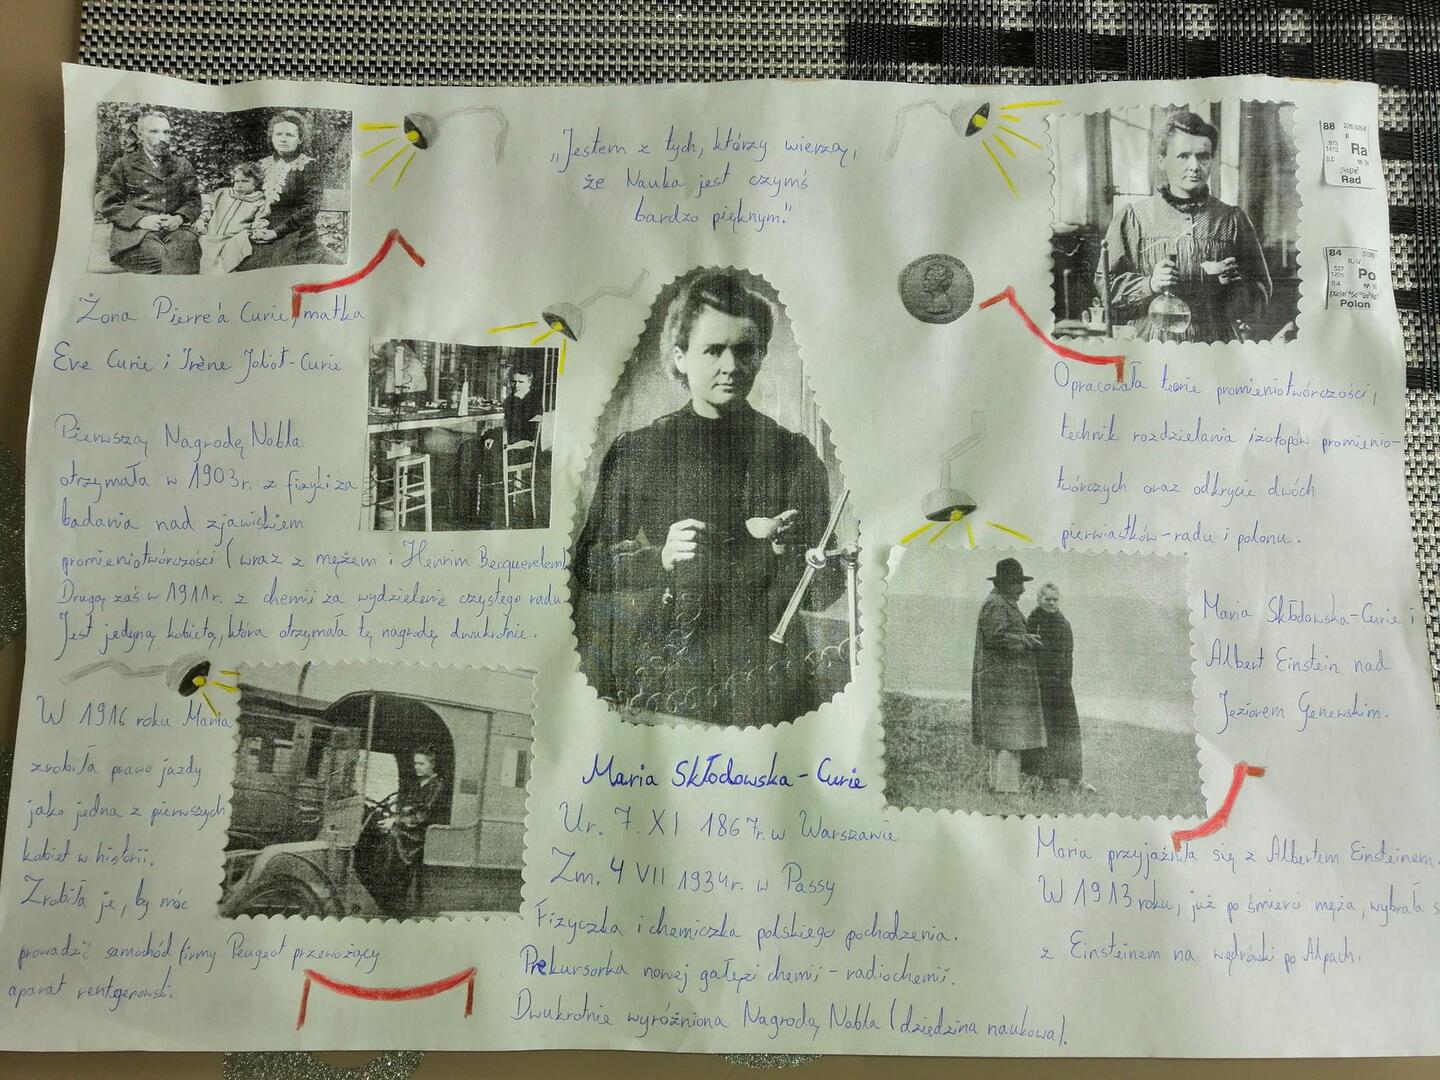 „Jestem z tych, którzy wierzą,
że Nauka jest czymś
bardzo pięknym."
88 226,0254
II
Ra
Rad
84 (209)
II, IV
Po
Polon
Żona Pierre'a Curie, matka
Eve Curie i Irène Joliot-Curie
Pierwszą Nagrodę Nobla
otrzymała w 1903r. z fizyki za
badania nad zjawiskiem
promieniotwórczości (wraz z mężem i Henrim Becquerelem)
Drugą zaś w 1911r. z chemii za wydzielenie czystego radu.
Jest jedyną kobietą, która otrzymała tę nagrodę dwukrotnie.
Opracowała teorię promieniotwórczości,
technik rozdzielania izotopów promienio-
twórczych oraz odkrycie dwóch
pierwiastków-radu i polonu.
Maria Skłodowska-Curie i
Albert Einstein nad
Jeziorem Genewskim.
W 1916 roku Maria
zrobiła prawo jazdy
jako jedna z pierwszych
kobiet w historii.
Zrobiła je, by móc
prowadzić samochód firmy Peugeot przewożący
aparat rentgenowski.
Maria Skłodowska-Curie
Ur. 7. XI 1867r. w Warszawie
Zm. 4 VII 1934r. w Passy
Fizyczka i chemiczka polskiego pochodzenia.
Prekursorka nowej gałęzi chemii - radiochemii.
Dwukrotnie wyróżniona Nagrodą Nobla (dziedzina naukowa).
Maria przyjaźniła się z Albertem Einsteinem.
W 1913 roku, już po śmierci męża, wybrała s
z Einsteinem na wędrówki po Alpach.